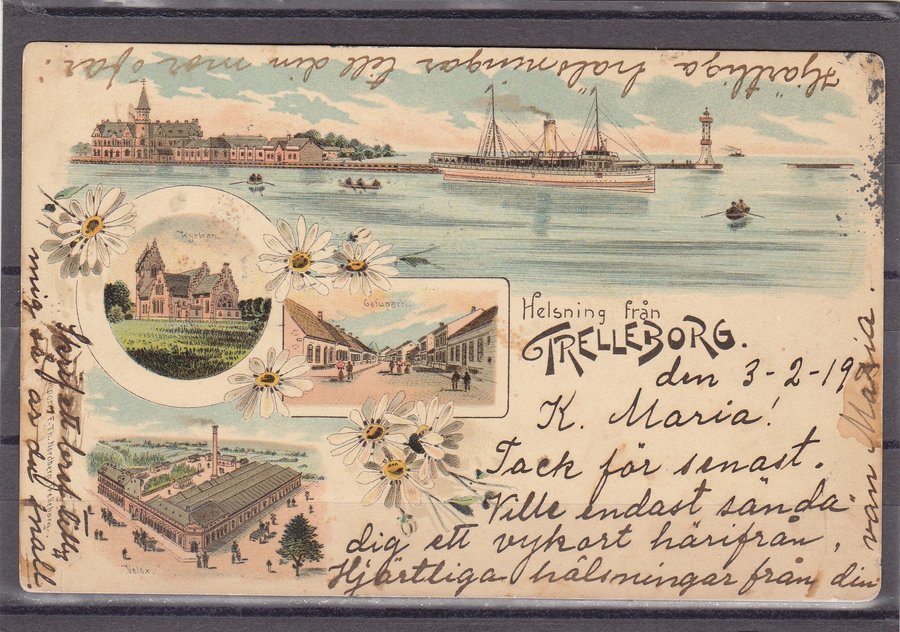 Hjärtliga hälsningar till din mor o far!
Kyrkan.
Gatuparti.
Helsning från
TRELLEBORG.
den 3-2-19
K. Maria!
Tack för senast.
Ville endast sända
dig ett vykort härifrån,
Hjärtliga hälsningar från din
vän Maria.
Velox.
mig ett av dul snäll